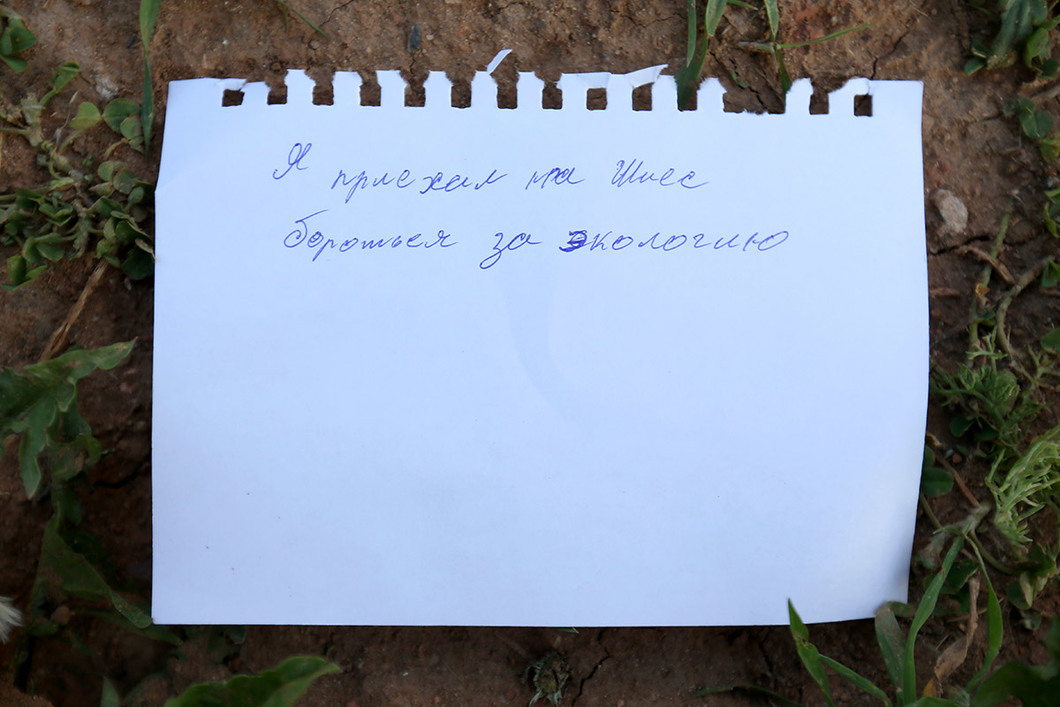 Я приехал на Шиес
бороться за экологию